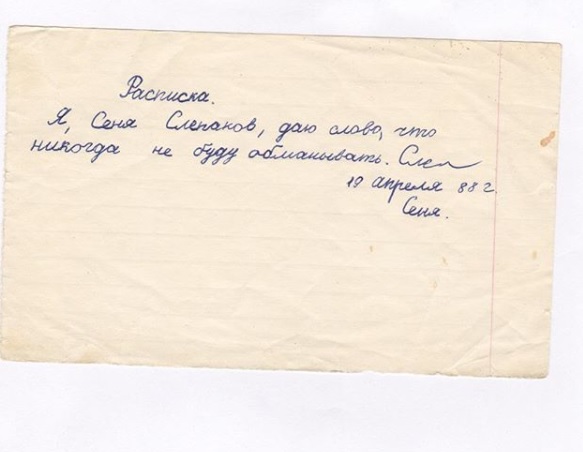 Расписка.
Я, Сеня Слепаков, даю слово, что
никогда не буду обманывать.
19 апреля 88 г.
Сеня.